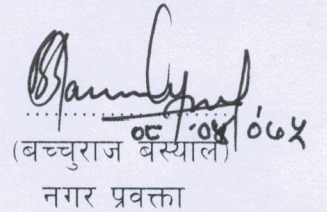 ०८ / ०४ / ०७५
(बच्चुराज बस्याल)
नगर प्रवक्ता